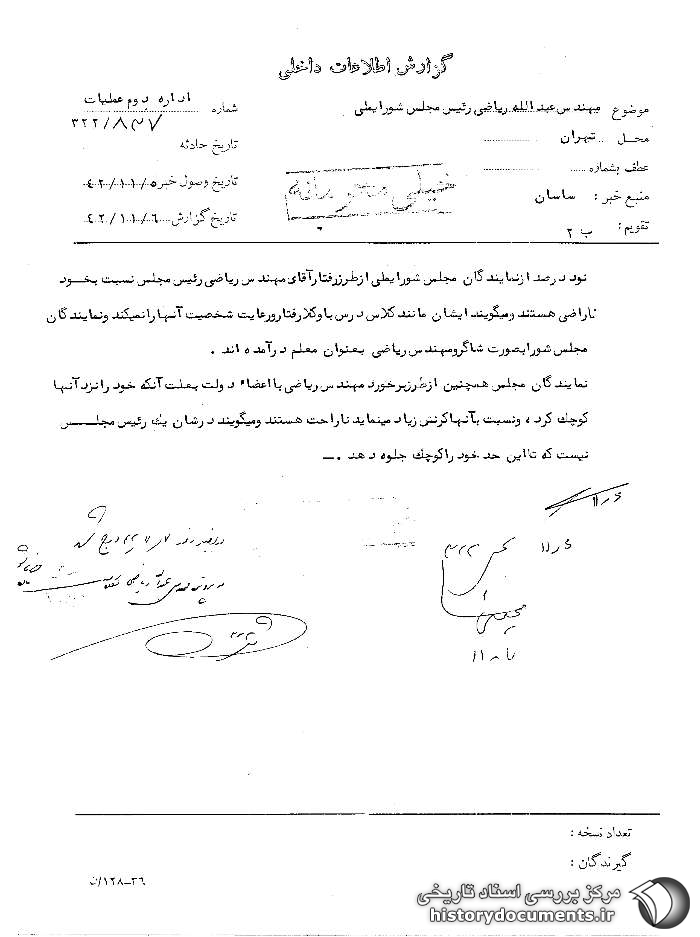 گزارش اطلاعات داخلی
موضوع مهندس عبدالله ریاضی رئیس مجلس شورایملی
محل تهران
عطف بشماره
منبع خبر : ساسان
تقویم : ب ۲
شماره اداره دوم عملیات
۳۲۲/۸۳۷
تاریخ حادثه
تاریخ وصول خبر ۴۲/۱۱/۵
تاریخ گزارش ۴۲/۱۱/۶
خیلی محرمانه
نود درصد از نمایندگان مجلس شورایملی از طرز رفتار آقای مهندس ریاضی رئیس مجلس نسبت بخود
ناراضی هستند ومیگویند ایشان مانند کلاس درس با وکلا رفتار ورعایت شخصیت آنها را نمیکند ونمایندگان
مجلس شورا بصورت شاگرومهندس ریاضی بعنوان معلم درآمده اند .
نمایندگان مجلس همچنین از طرز برخورد مهندس ریاضی با اعضاء دولت بعلت آنکه خود را نزد آنها
کوچک کرده ونسبت بآنها کرنش زیاد مینماید ناراحت هستند ومیگویند درشان یک رئیس مجلس
نیست که تا این حد خود را کوچک جلوه دهد .ـ
تعداد نسخه :
گیرندگان :
۳۶-۱۲۸/ن
مرکز بررسی اسناد تاریخی
historydocuments.ir